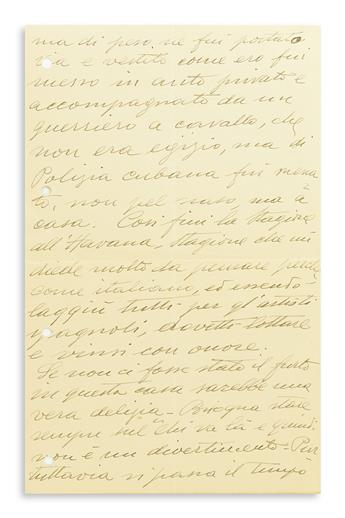 ma di peso ne fui portato
via e vestito come ero fui
messo in auto privato e
accompagnato da un
guerriero a cavallo, che
non era egizio, ma di
Polizia cubana fui mena
to, non pel naso, ma a
casa. Così finì la stagione
all'Havana, stagione che mi
diede molto da pensare perchè
come italiano, ed essendo
laggiù tutti per gl'artisti
spagnoli, dovetti lottare
e vinsi con onore.
Se non ci fosse stato il furto
in questa casa sarebbe una
vera delizia - Bisogna stare
sempre sul "chi va là" e quindi
non è un divertimento - Pur
tuttavia si passa il tempo